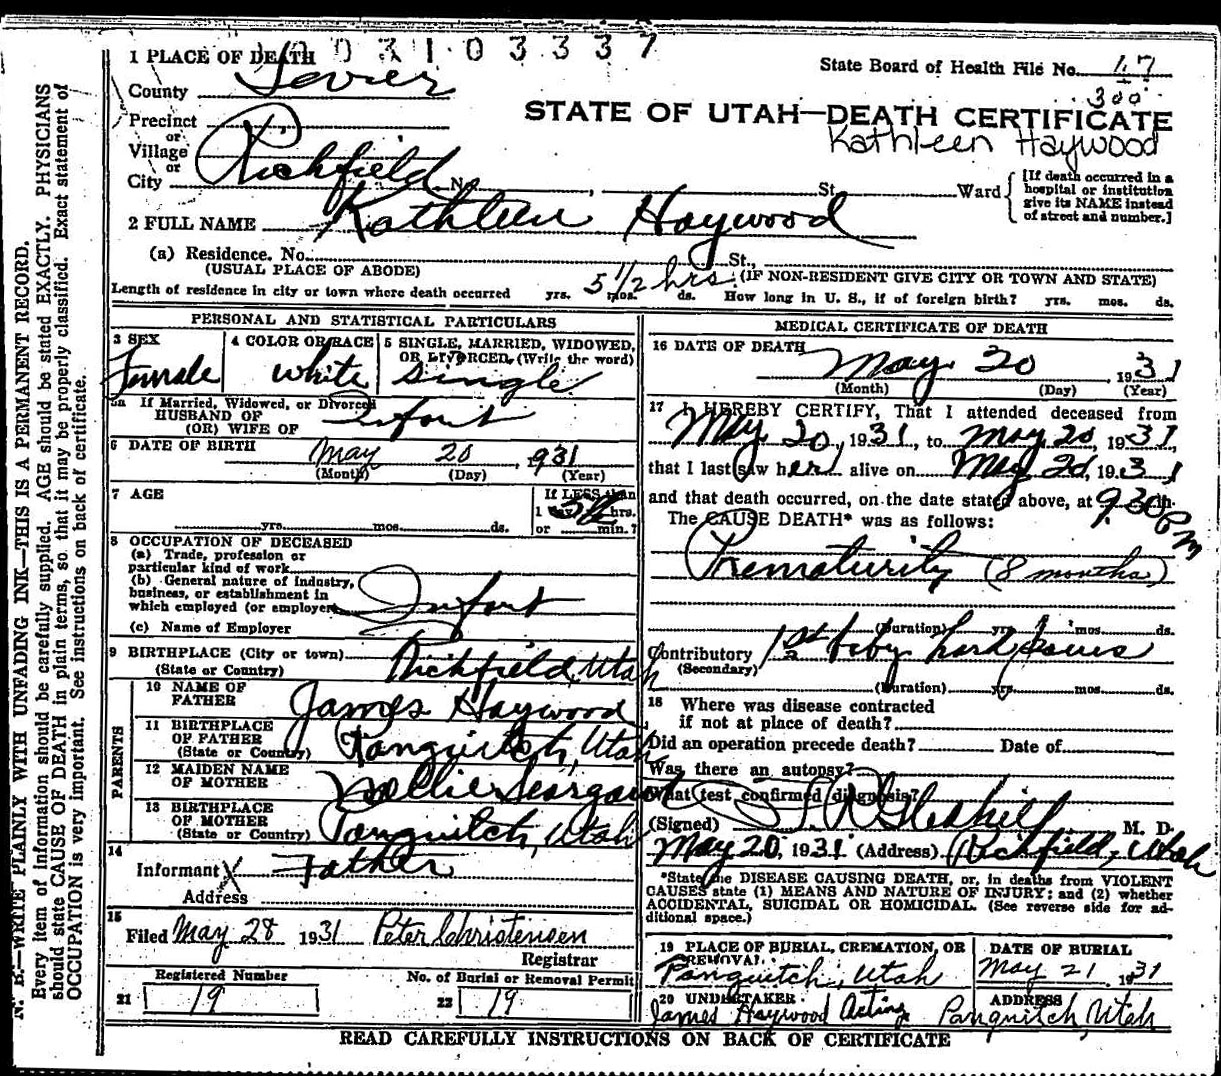 0 3 1 0 3 3 3 7
1 PLACE OF DEATH
State Board of Health File No. 17
300
County Sevier
STATE OF UTAH—DEATH CERTIFICATE
Kathleen Haywood
Precinct
or
Village
or
City Richfield No. , St. Ward
[If death occurred in a hospital or institution give its NAME instead of street and number.]
2 FULL NAME Kathleen Haywood
(a) Residence. No. St.,
(USUAL PLACE OF ABODE) (IF NON-RESIDENT GIVE CITY OR TOWN AND STATE)
Length of residence in city or town where death occurred yrs. mos. ds. 5 1/2 hrs. How long in U. S., if of foreign birth? yrs. mos. ds.
PERSONAL AND STATISTICAL PARTICULARS
3 SEX Female
4 COLOR OR RACE white
5 SINGLE, MARRIED, WIDOWED, OR DIVORCED (Write the word) Single
5a If Married, Widowed, or Divorced
HUSBAND OF
(OR) WIFE OF Infant
6 DATE OF BIRTH May 20, 931
(Month) (Day) (Year)
7 AGE yrs. mos. ds.
If LESS than
1 day 5 1/2 hrs.
or min.?
8 OCCUPATION OF DECEASED
(a) Trade, profession or
particular kind of work
(b) General nature of industry,
business, or establishment in
which employed (or employer) Infant
(c) Name of Employer
9 BIRTHPLACE (City or town) Richfield, Utah
(State or Country)
PARENTS
10 NAME OF FATHER James Haywood
11 BIRTHPLACE OF FATHER (State or Country) Panguitch, Utah
12 MAIDEN NAME OF MOTHER Nellie
13 BIRTHPLACE OF MOTHER (State or Country) Panguitch, Utah
14
Informant X Father
Address
15
Filed May 28 1931 Peter Christensen
Registrar
Registered Number
21 19
No. of Burial or Removal Permit
22 19
MEDICAL CERTIFICATE OF DEATH
16 DATE OF DEATH
May 20, 1931
(Month) (Day) (Year)
17 I HEREBY CERTIFY, That I attended deceased from
May 20, 1931, to May 20, 1931
that I last saw her alive on May 20, 1931
and that death occurred, on the date stated above, at 9:30 m. PM
The CAUSE DEATH* was as follows:
Prematurity (8 months)
(Duration) yrs. mos. ds.
Contributory 1st baby hard
(Secondary)
(Duration) yrs. mos. ds.
18 Where was disease contracted
if not at place of death?
Did an operation precede death? Date of
Was there an autopsy?
What test confirmed diagnosis?
(Signed) M. D.
May 20, 1931 (Address) Richfield, Utah
*State the DISEASE CAUSING DEATH, or, in deaths from VIOLENT
CAUSES state (1) MEANS AND NATURE OF INJURY; and (2) whether
ACCIDENTAL, SUICIDAL OR HOMICIDAL. (See reverse side for ad-
ditional space.)
19 PLACE OF BURIAL, CREMATION, OR REMOVAL
Panguitch, Utah
DATE OF BURIAL
May 21, 1931
20 UNDERTAKER
James Haywood Acting
ADDRESS
Panguitch, Utah
READ CAREFULLY INSTRUCTIONS ON BACK OF CERTIFICATE
N. B.—WRITE PLAINLY WITH UNFADING INK—THIS IS A PERMANENT RECORD.
Every item of information should be carefully supplied. AGE should be stated EXACTLY. PHYSICIANS
should state CAUSE OF DEATH in plain terms, so that it may be properly classified. Exact statement of
OCCUPATION is very important. See instructions on back of certificate.